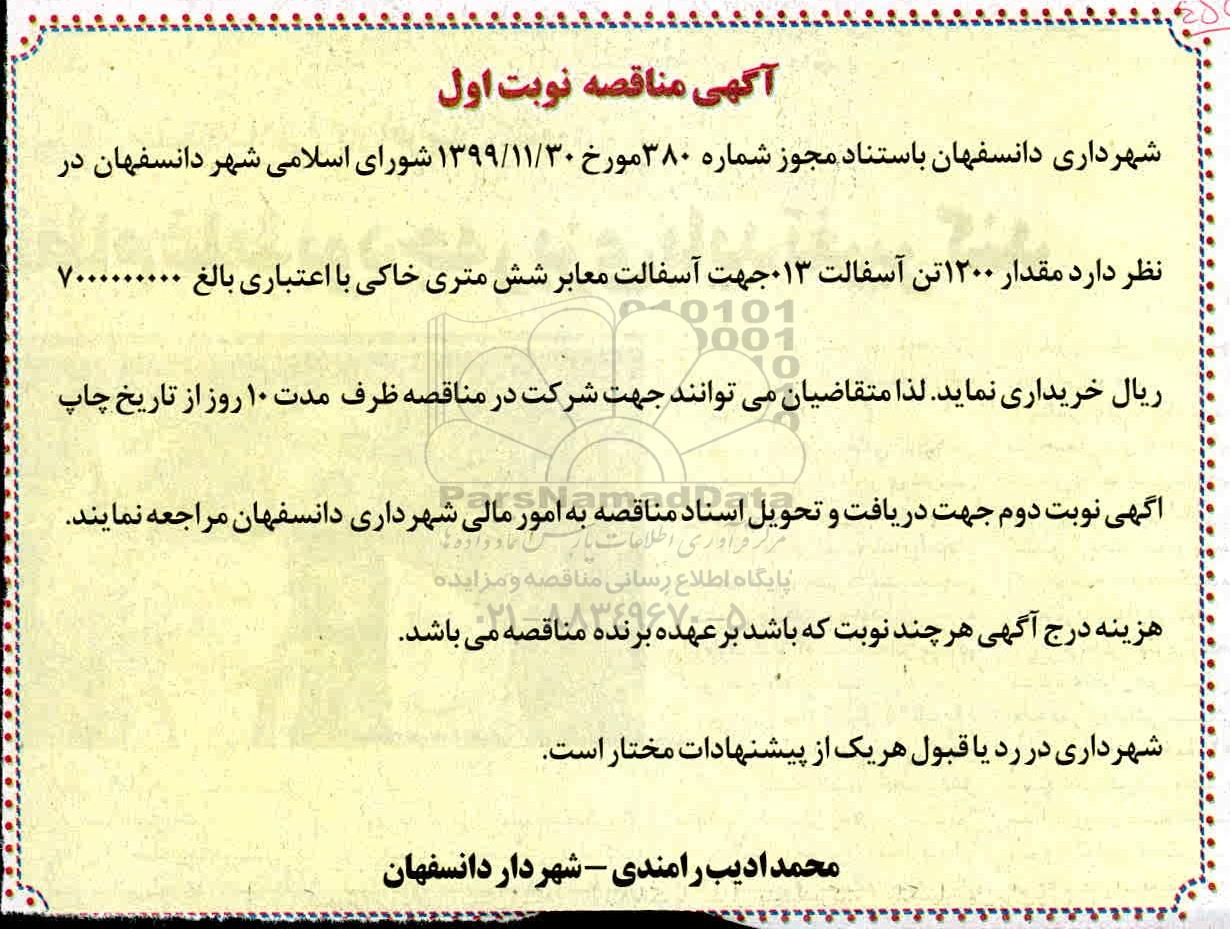 آگهی مناقصه نوبت اول
شهرداری دانسفهان باستناد مجوز شماره ۳۸۰مورخ ۱۳۹۹/۱۱/۳۰ شورای اسلامی شهر دانسفهان در
نظر دارد مقدار ۱۲۰۰تن آسفالت ۰۱۳جهت آسفالت معابر شش متری خاکی با اعتباری بالغ ۷۰۰۰۰۰۰۰۰۰
ریال خریداری نماید. لذا متقاضیان می توانند جهت شرکت در مناقصه ظرف مدت ۱۰ روز از تاریخ چاپ
اگهی نوبت دوم جهت دریافت و تحویل اسناد مناقصه به امور مالی شهرداری دانسفهان مراجعه نمایند.
هزینه درج آگهی هر چند نوبت که باشد بر عهده برنده مناقصه می باشد.
شهرداری در رد یا قبول هر یک از پیشنهادات مختار است.
محمد ادیب رامندی – شهردار دانسفهان
ParsNamadData
مرکز فرآوری اطلاعات پارس نماد داده ها
پایگاه اطلاع رسانی مناقصه و مزایده
۰۲۱-۸۸۳۴۹۶۷۰-۵